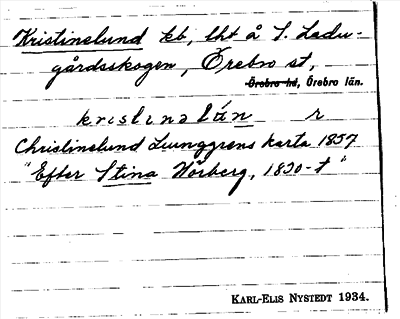 Kristinelund kb, lht å S. Ladu-
gårdsskogen, Örebro st,
Örebro hd, Örebro län.
kristinalún r
Christinelund Ljunggrens karta 1857
"Efter Stina Hörberg, 1830-t"
KARL-ELIS NYSTEDT 1934.